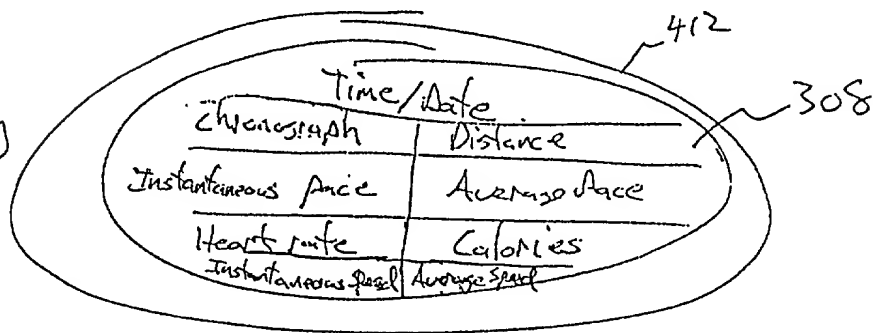 412
308
Time/Date
Chronograph Distance
Instantaneous Pace Average Pace
Heart rate Calories
Instantaneous Speed Average Speed